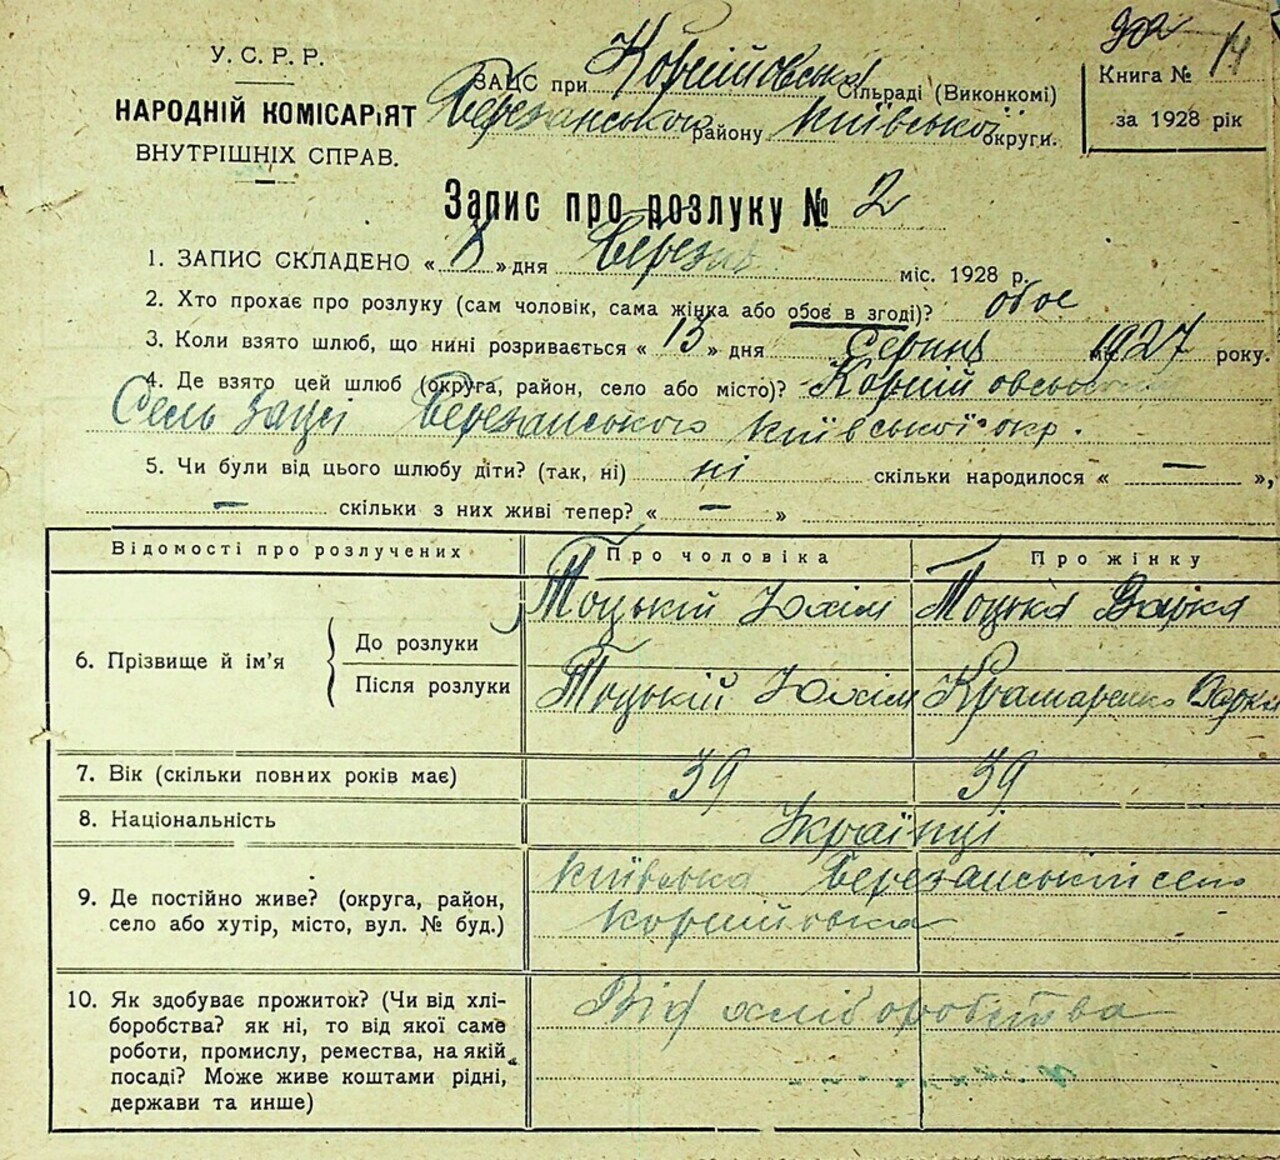 У.С.Р.Р.
НАРОДНІЙ КОМІСАРіЯТ
ВНУТРІШНІХ СПРАВ.
ЗАЦС при Корнійовська Сільраді (Виконкомі)
Березанського району Київської округи.
Книга № 14
за 1928 рік
Запис про розлуку № 2
1. ЗАПИС СКЛАДЕНО « 8 » дня Березня міс. 1928 р.
2. Хто прохає про розлуку (сам чоловік, сама жінка або обоє в згоді)? обоє
3. Коли взято шлюб, що нині розривається « 13 » дня Серпня міс. 1927 року.
4. Де взято цей шлюб (округа, район, село або місто)?
Березанського Київської окр.
5. Чи були від цього шлюбу діти? (так, ні) ні скільки народилося « — »,
— скільки з них живі тепер? « — »
Відомості про розлучених Про чоловіка Про жінку
6. Прізвище й ім'я
До розлуки Тоцький Юхім Тоцька Варка
Після розлуки Тоцький Юхім Крамаренко Варка
7. Вік (скільки повних років має) 39 39
8. Національність Українці
9. Де постійно живе? (округа, район, Київська Березанський село
село або хутір, місто, вул. № буд.) Корнійовка
10. Як здобуває прожиток? (Чи від хлі- Від хліборобства
боробства? як ні, то від якої саме
роботи, промислу, ремества, на якій
посаді? Може живе коштами рідні,
держави та инше)